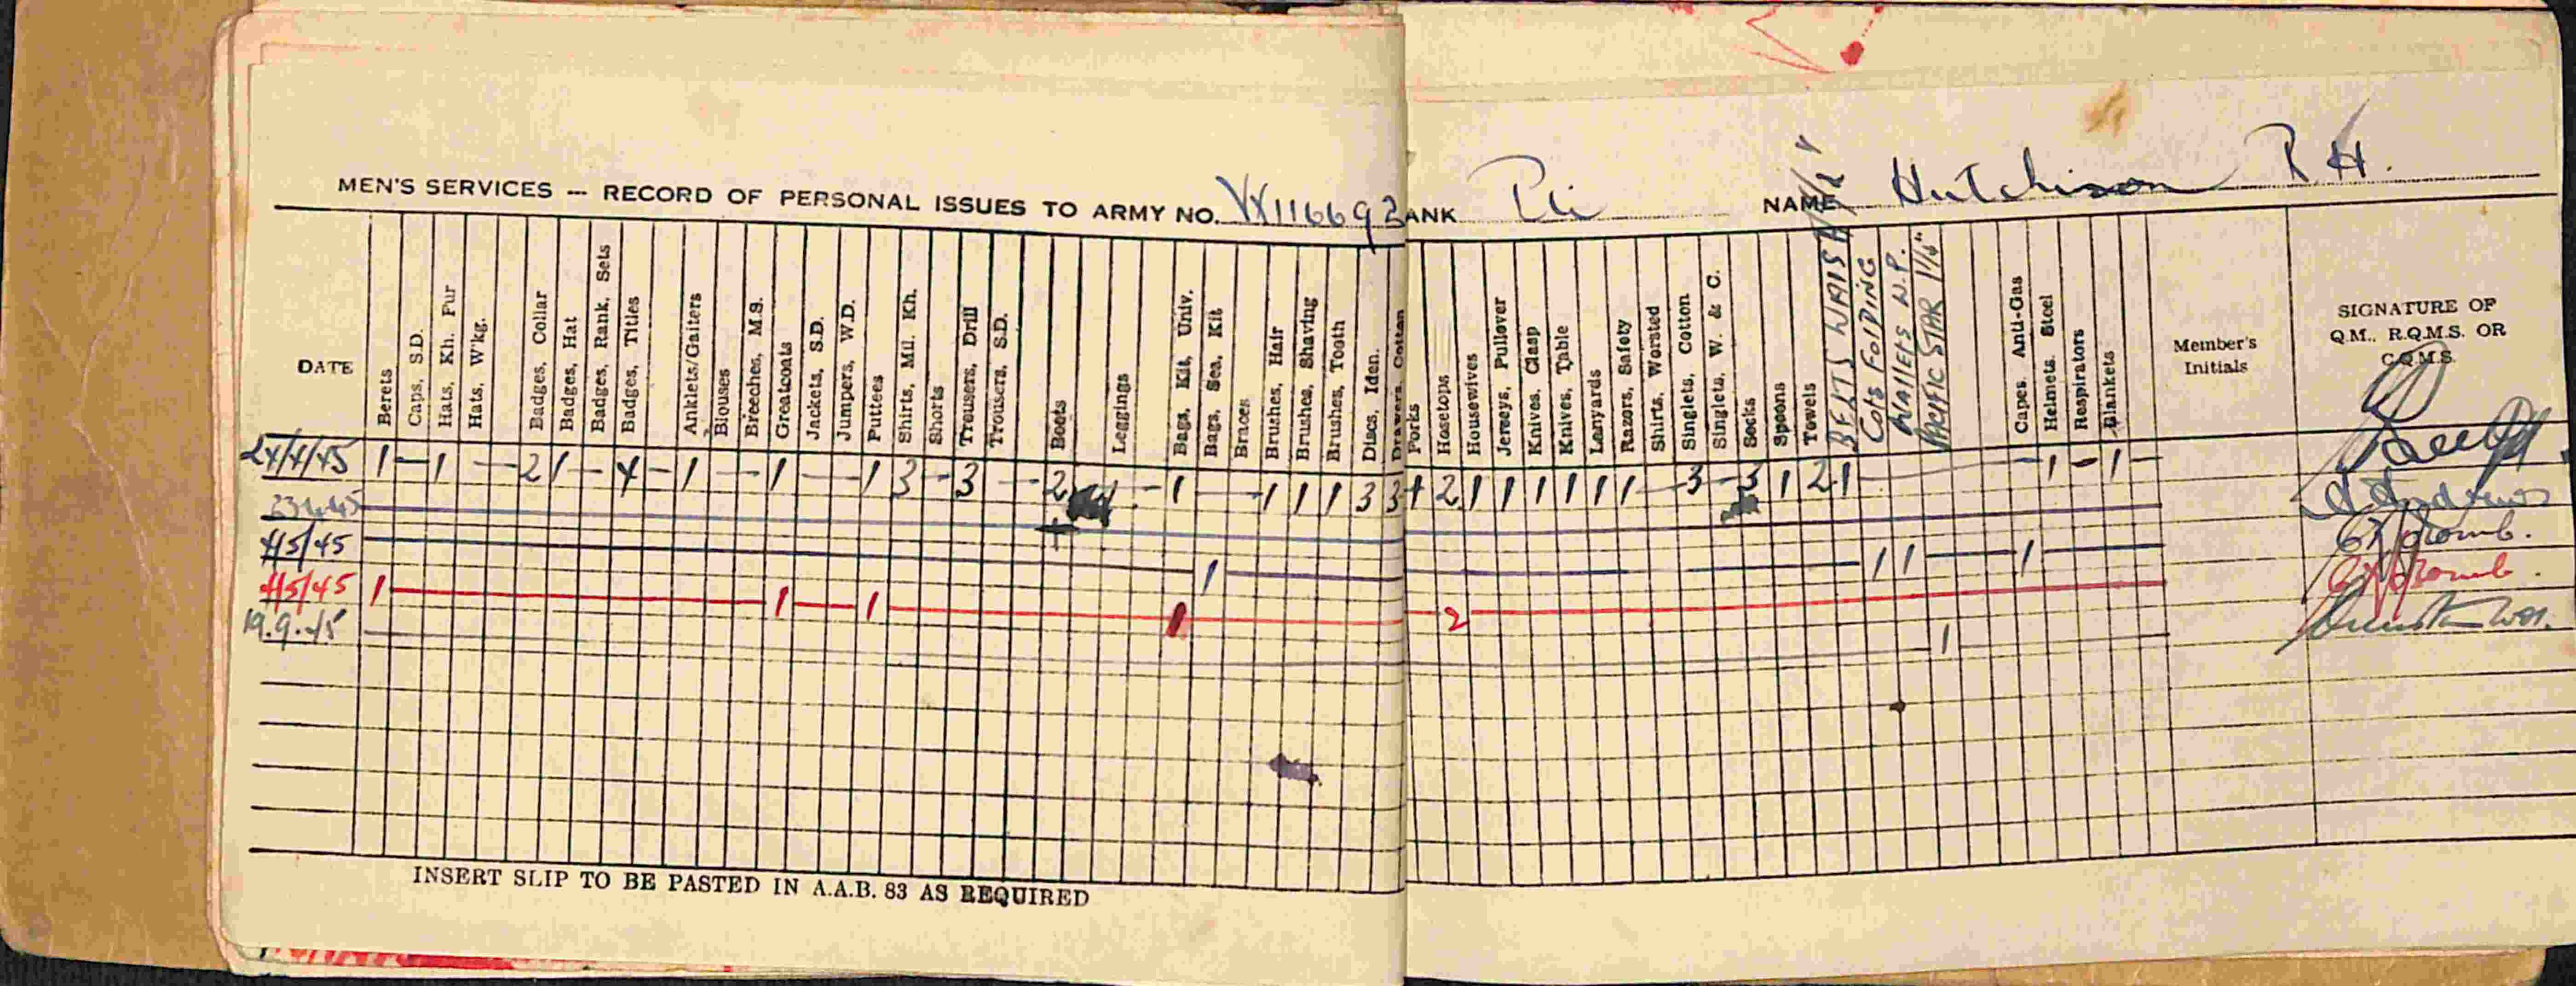 MEN'S SERVICES --- RECORD OF PERSONAL ISSUES TO ARMY NO. VX116692 ANK Pte NAME Hutchison R H.
DATE
Berets
Caps, S.D.
Hats, Kh. Fur
Hats, W'kg.
Badges, Collar
Badges, Hat
Badges, Rank, Sets
Badges, Titles
Anklets/Gaiters
Blouses
Breeches, M.S.
Greatcoats
Jackets, S.D.
Jumpers, W.D.
Puttees
Shirts, Mil. Kh.
Shorts
Trousers, Drill
Trousers, S.D.
Boots
Leggings
Bags, Kit, Univ.
Bags, Sea, Kit
Braces
Brushes, Hair
Brushes, Shaving
Brushes, Tooth
Discs, Iden.
Drawers, Cotton
Forks
Hosetops
Housewives
Jerseys, Pullover
Knives, Clasp
Knives, Table
Lanyards
Razors, Safety
Shirts, Worsted
Singlets, Cotton
Singlets, W. & C.
Socks
Spoons
Towels
BELTS WAIST
COTS FOLDING
WALLETS W.P.
PACIFIC STAR 1 1/16"
Capes, Anti-Gas
Helmets, Steel
Respirators
Blankets
Member's
Initials
SIGNATURE OF
Q.M., R.Q.M.S. OR
C.Q.M.S.
24/4/45 1 — 1 — 2 1 — 4 — 1 — 1 — 1 3 - 3 — 2 - 1 — 1 1 1 3 3 1 2 1 1 1 1 1 1 — 3 - 3 1 2 1 — 1 - 1 —
/5/45 1 1 1 — 1
/5/45 1 — 1 — 1 — 1 2
19.9.45 1
INSERT SLIP TO BE PASTED IN A.A.B. 83 AS REQUIRED